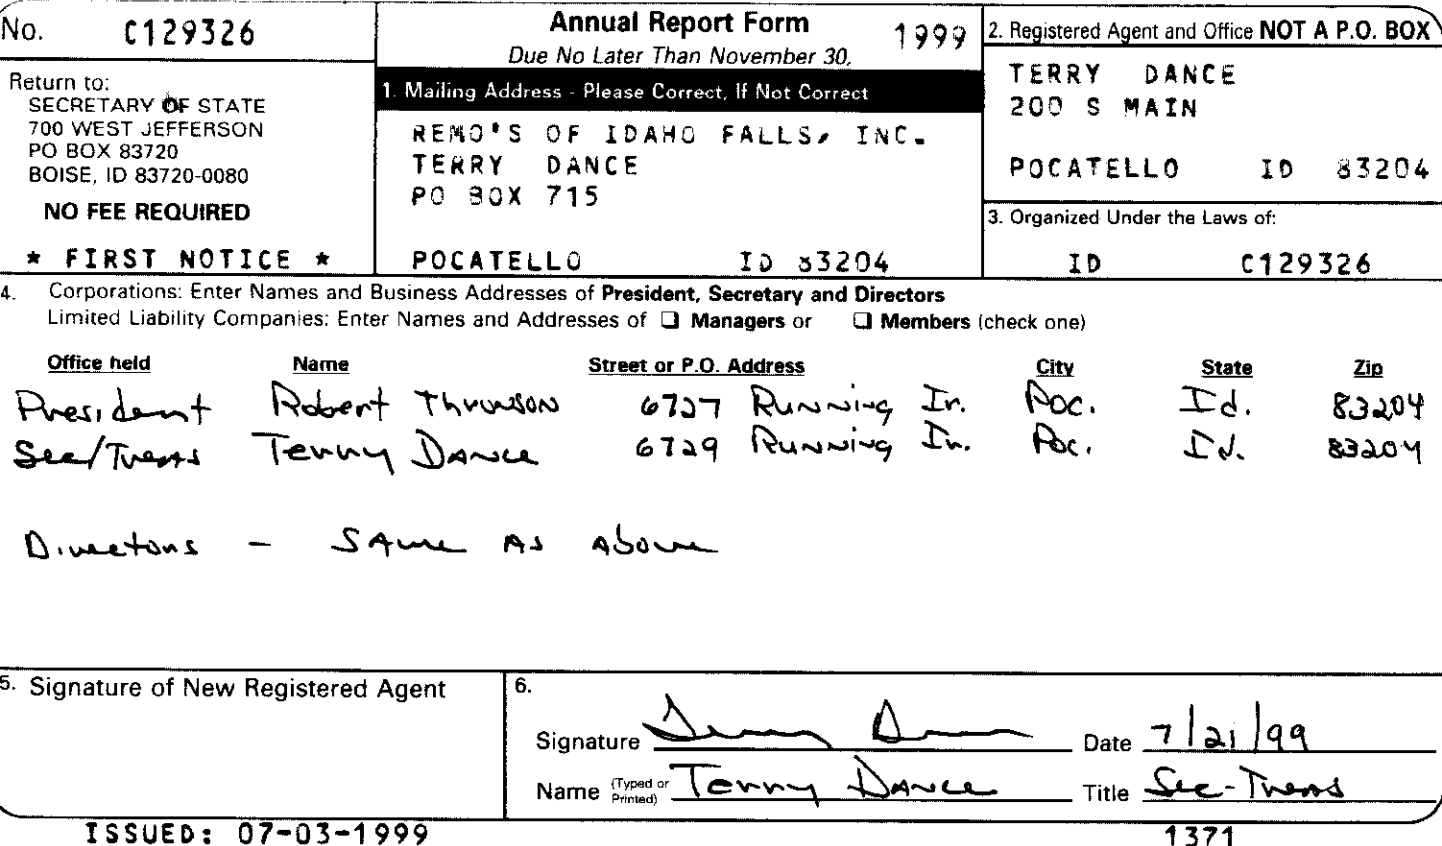 No. C129326
Return to:
SECRETARY OF STATE
700 WEST JEFFERSON
PO BOX 83720
BOISE, ID 83720-0080
NO FEE REQUIRED
* FIRST NOTICE *
Annual Report Form 1999
Due No Later Than November 30.
1. Mailing Address - Please Correct, If Not Correct
REMO'S OF IDAHO FALLS, INC.
TERRY DANCE
PO BOX 715
POCATELLO ID 83204
2. Registered Agent and Office NOT A P.O. BOX
TERRY DANCE
200 S MAIN
POCATELLO ID 83204
3. Organized Under the Laws of:
ID C129326
4. Corporations: Enter Names and Business Addresses of President, Secretary and Directors
Limited Liability Companies: Enter Names and Addresses of ❑ Managers or ❑ Members (check one)
Office held Name Street or P.O. Address City State Zip
President Robert 6727 Running Ln. Poc. Id. 83204
Sec/Treas Terry Dance 6729 Running Ln. Poc. Id. 83204
Directors - Same As Above
5. Signature of New Registered Agent
6.
Signature Terry Dance Date 7/21/99
Name (Typed or Printed) Terry Dance Title Sec-Treas
ISSUED: 07-03-1999
1371